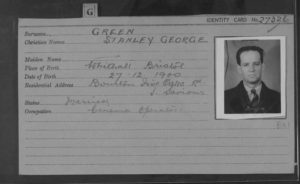 G
IDENTITY CARD No. 27326
Surname GREEN
Christian Names STANLEY GEORGE
Maiden Name
Place of Birth Whitehall Bristol
Date of Birth 27.12.1900
Residential Address
St. Saviour
Status Married
Occupation Cinema Operator